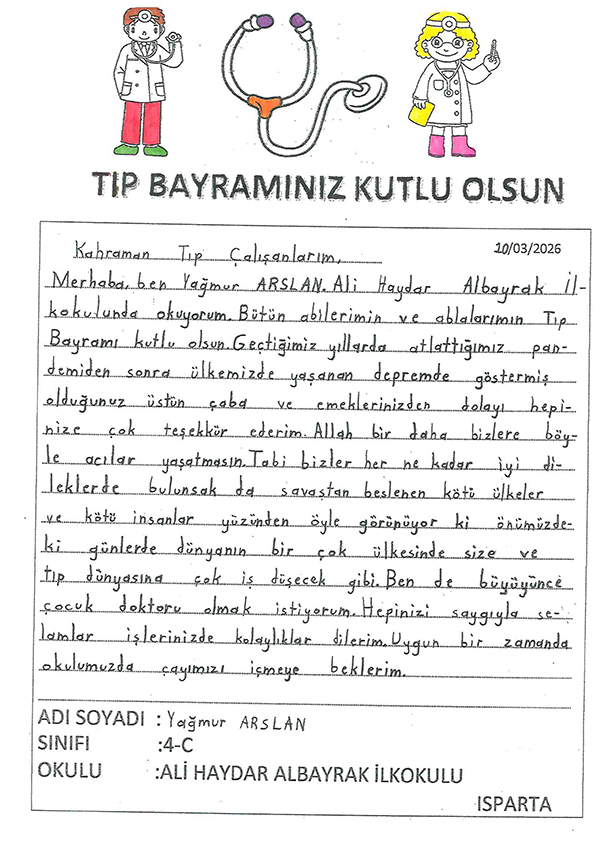 TIP BAYRAMINIZ KUTLU OLSUN
Kahraman Tıp Çalışanlarım,
10/03/2026
Merhaba, ben Yağmur ARSLAN. Ali Haydar Albayrak İl-
kokulunda okuyorum. Bütün abilerimin ve ablalarımın Tıp
Bayramı kutlu olsun. Geçtiğimiz yıllarda atlattığımız pan-
demiden sonra ülkemizde yaşanan depremde göstermiş
olduğunuz üstün çaba ve emeklerinizden dolayı hepi-
nize çok teşekkür ederim. Allah bir daha bizlere böy-
le acılar yaşatmasın. Tabi bizler her ne kadar iyi di-
leklerde bulunsak da savaştan beslenen kötü ülkeler
ve kötü insanlar yüzünden öyle görünüyor ki önümüzde-
ki günlerde dünyanın bir çok ülkesinde size ve
tıp dünyasına çok iş düşecek gibi. Ben de büyüyünce
çocuk doktoru olmak istiyorum. Hepinizi saygıyla se-
lamlar işlerinizde kolaylıklar dilerim. Uygun bir zamanda
okulumuzda çayımızı içmeye beklerim.
ADI SOYADI : Yağmur ARSLAN
SINIFI :4-C
OKULU :ALİ HAYDAR ALBAYRAK İLKOKULU
ISPARTA